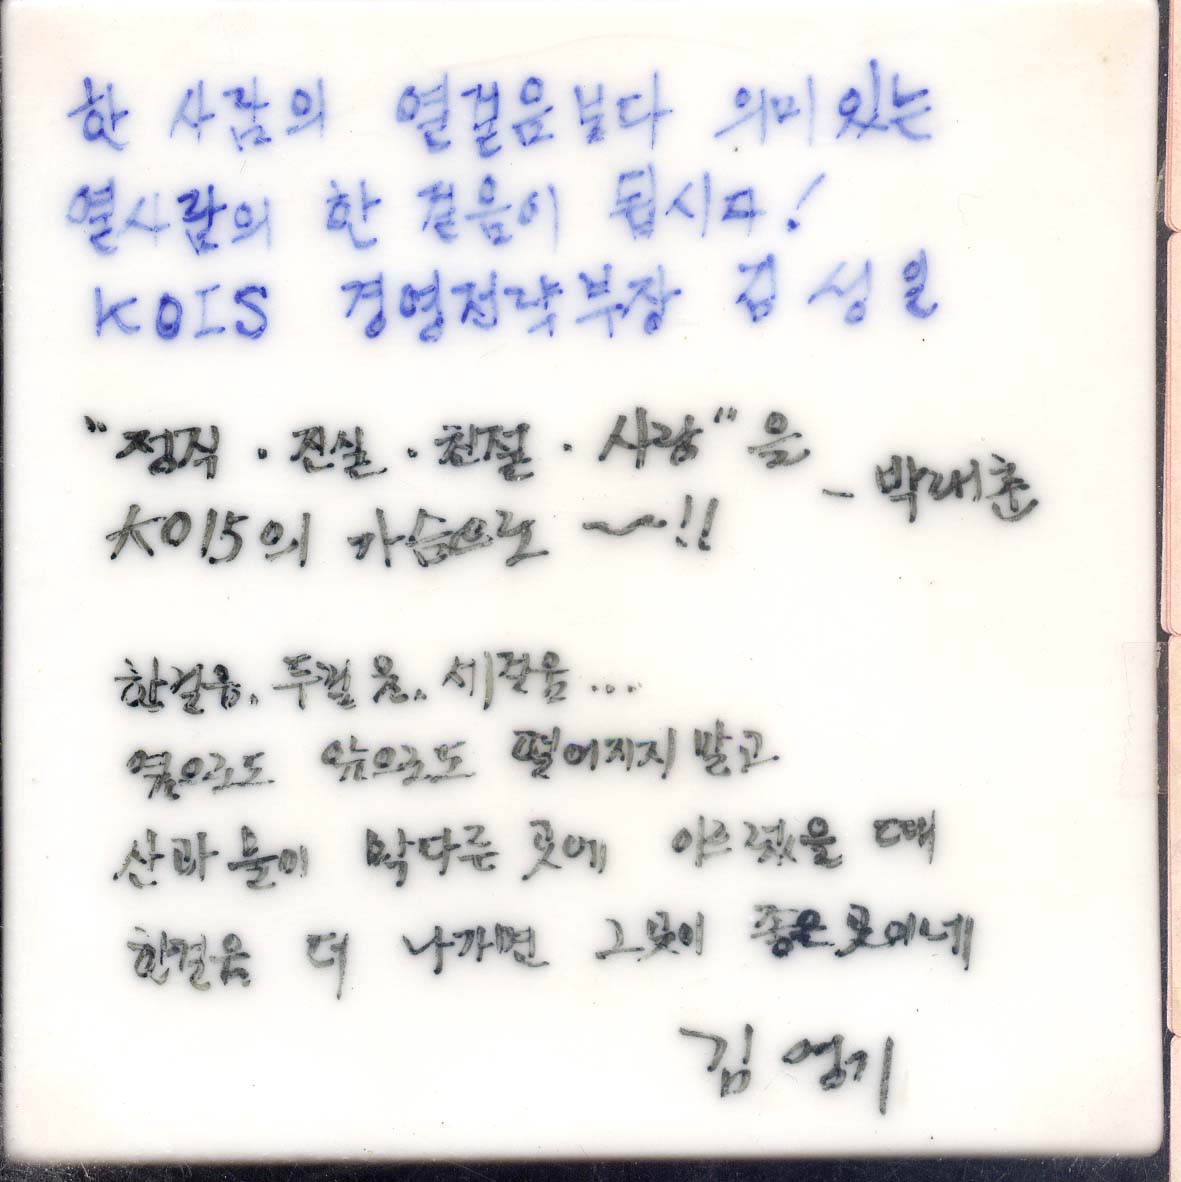 한 사람의 열걸음보다 의미있는
열사람의 한 걸음이 됩시다!
KOIS 경영전략부장 김성일
"정직·진실·친절·사랑"을
KOIS의 가슴으로 ~!!
- 박래춘
한걸음, 두걸음, 세걸음...
옆으로도 앞으로도 떨어지지말고
산과 물이 막다른 곳에 이르렀을 때
한걸음 더 나가면 그곳이 좋은곳이네
김영기